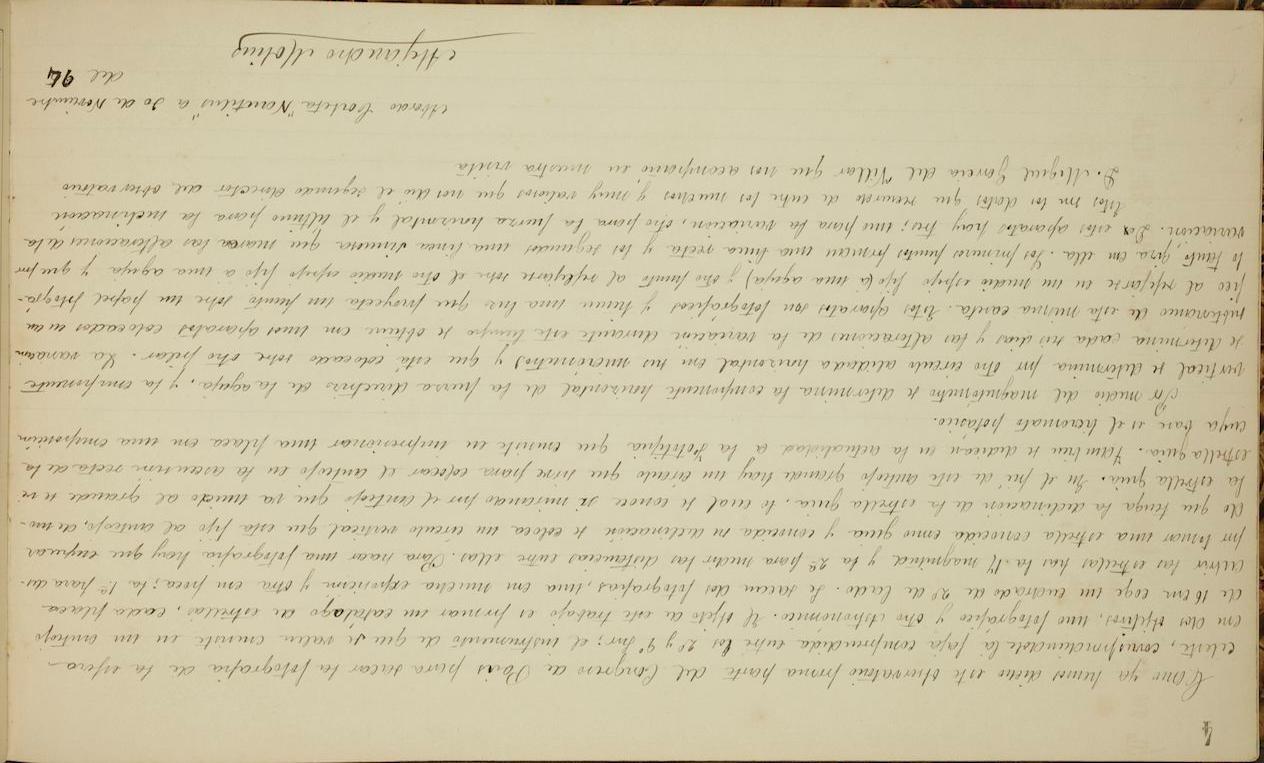 4
Como ya hemos dicho este observatorio forma parte del Congreso de Paris para sacar la fotografia de la esfera
celeste, correspondiendole la faja comprendida entre los 2º y 9º Sur; el instrumento de que se valen consiste en un anteojo
con dos objetivos, uno fotográfico y otro astronomico. El objeto de este trabajo es formar un catalago de estrellas, cada placa
de 16 cm coge un cuadrado de 2º de lado. Se sacan dos fotografias, una con mucha exposicion y otra con poca; la 1ª para des-
cubrir las estrellas hasta la 14 magnitud y la 2ª para medir las distancias entre ellas. Para sacar una fotografia hay que empezar
por tomar una estrella conocida como guia y conocida su declinacion se coloca un circulo vertical que esta fijo al anteojo, de mo-
do que tenga la declinacion de la estrella guia. lo cual se conoce mirando por el anteojo que va unido al grande si se ve
la estrella guia. En el pié de este anteojo grande hay un circulo que sirve para colocar el anteojo en la ascension recta de la
estrella guia. Tambien se dedican en la actualidad a la que consiste en impresionar una placa con una composicion
cuya base es el cromato potásico.
Por medio del magnetómetro se determina la componente horizontal de la fuerza directriz de la aguja, y la componente
vertical se determina por otro circulo alidada horizontal con sus micrometros y que está colocado sobre otro pilar. La variacion
se determina cada diez dias y las alteraciones de la variacion durante este tiempo se obtiene con unos aparatos colocados en un
subterraneo de esta misma caseta. Estos aparatos son fotográficos y tienen una luz que proyecta un punto sobre un papel fotográ-
fico al reflejarse en un medio espejo fijo (a una aguja) y otro punto al reflejarse sobre el otro medio espejo fijo a una aguja y que por
lo tanto gira con ella. Los primeros puntos forman una linea recta y los segundos una linea sinuosa que marca las alteraciones de la
variacion. De estos aparatos hay tres; uno para la variacion, otro para la fuerza horizontal y el ultimo para la inclinacion
Estos son los datos que recuerdo de entre los muchos y muy valiosos que nos dió el segundo director del observatorio
D. Miguel Garcia del Villar que nos acompañó en nuestra visita
Abordo Corbeta "Nautilus" a 30 de Noviembre
del 94
Alejandro Molins